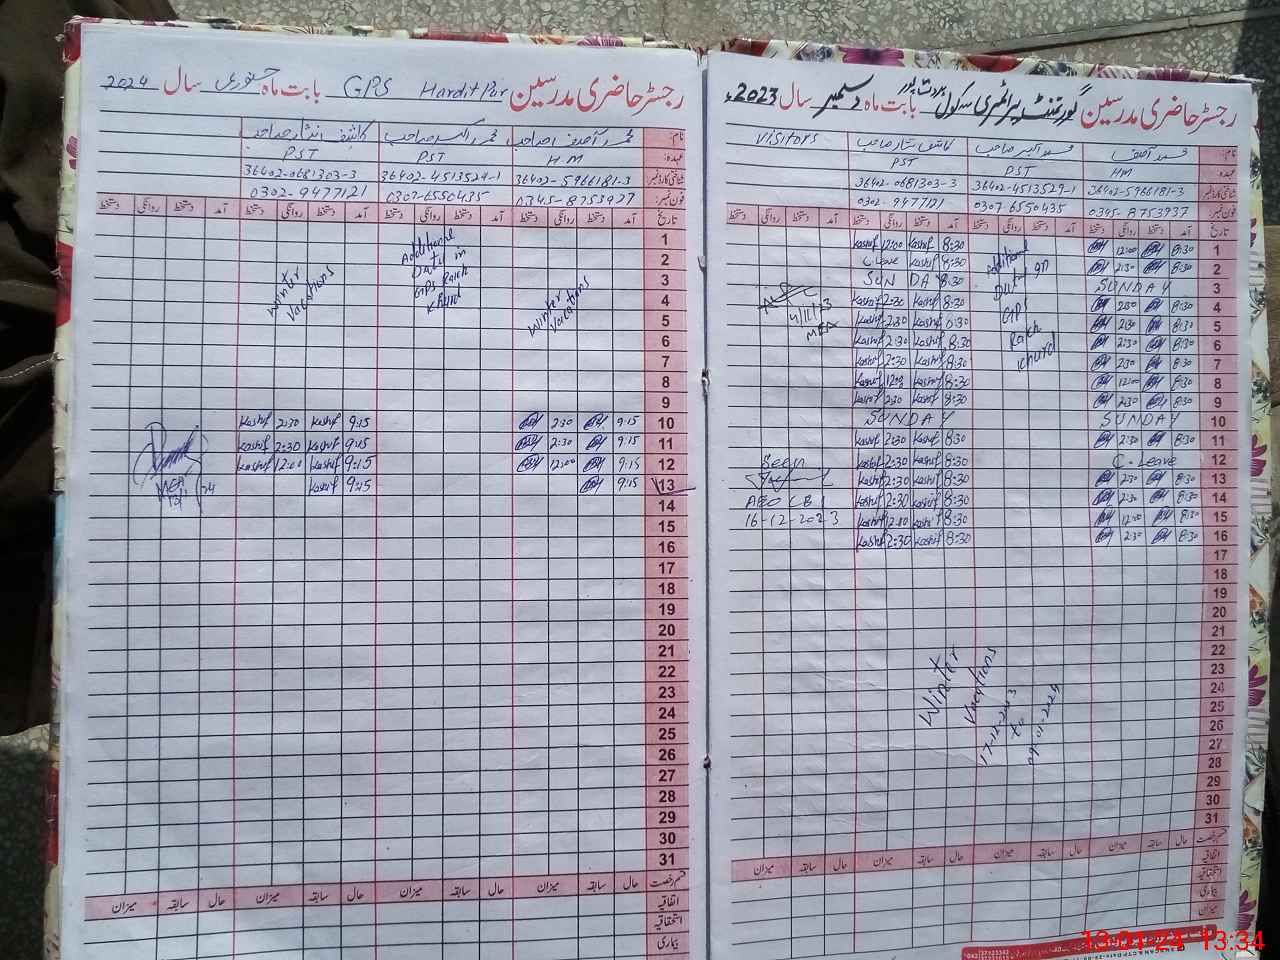 رجسٹر حاضری مدرسین GPS Hardit Pur بابت ماہ جنوری سال 2024
نام:
عہدہ: HM PST PST
شناختی کارڈ نمبر 36402-5966181-3 36402-4513529-1 36402-0681303-3
فون نمبر: 0345-8753927 0307-6550435 0302-9477121
تاریخ آمد دستخط روانگی دستخط آمد دستخط روانگی دستخط آمد دستخط روانگی دستخط آمد دستخط روانگی دستخط
1
2
3
4
5
6
7
8
9
Winter Vacations
Additional Duty in GPS Rakh Khurd
Winter Vacations
10 9:15 2:30 9:15 Kashif 2:30 Kashif
11 9:15 2:30 9:15 Kashif 2:30 Kashif
12 9:15 12:00 9:15 Kashif 12:00 Kashif
13 9:15 9:15 Kashif
MEA
14
15
16
17
18
19
20
21
22
23
24
25
26
27
28
29
30
31
قسم رخصت حال سابقہ میزان حال سابقہ میزان حال سابقہ میزان حال سابقہ میزان
اتفاقیہ
استحقاقیہ
بیماری
رجسٹر حاضری مدرسین گورنمنٹ پرائمری سکول ہردت پور بابت ماہ دسمبر سال 2023ء
نام: محمد آصف محمد اکبر صاحب کاشف نثار صاحب Visitors
عہدہ: HM PST PST
شناختی کارڈ نمبر 36402-5966181-3 36402-4513529-1 36402-0681303-3
فون نمبر: 0345-8753937 0307-6550435 0302-9477121
تاریخ آمد دستخط روانگی دستخط آمد دستخط روانگی دستخط آمد دستخط روانگی دستخط آمد دستخط روانگی دستخط
1 8:30 12:00 8:30 Kashif 12:00 Kashif
2 8:30 2:30 8:30 Kashif C.leave
3 SUNDAY SUN DAY 8:30
4 8:30 2:30 8:30 Kashif 2:30 Kashif
5 8:30 2:30 8:30 Kashif 2:30 Kashif
6 8:30 2:30 8:30 Kashif 2:30 Kashif
7 8:30 2:30 8:30 Kashif 2:30 Kashif
8 8:30 12:00 8:30 Kashif 12:00 Kashif
9 8:30 2:30 8:30 Kashif 2:30 Kashif
Additional Duty in GPS Rakh Khurd
MEA
10 SUNDAY SUNDAY
11 8:30 2:30 8:30 Kashif 2:30 Kashif
12 C.Leave 8:30 Kashif 2:30 Kashif Seen
13 8:30 2:30 8:30 Kashif 2:30 Kashif
14 8:30 2:30 8:30 Kashif 2:30 Kashif AEO
15 8:30 12:00 8:30 Kashif 12:00 Kashif 16-12-2023
16 8:30 2:30 8:30 Kashif 2:30 Kashif
17
18
19
20
21
22
23
24
25
26
27
28
29
30
31
Winter Vacations
17-12-2023 to 09-01-2024
قسم رخصت حال سابقہ میزان حال سابقہ میزان حال سابقہ میزان حال سابقہ میزان
اتفاقیہ
استحقاقیہ
بیماری
میزان
13-01-24 13:34